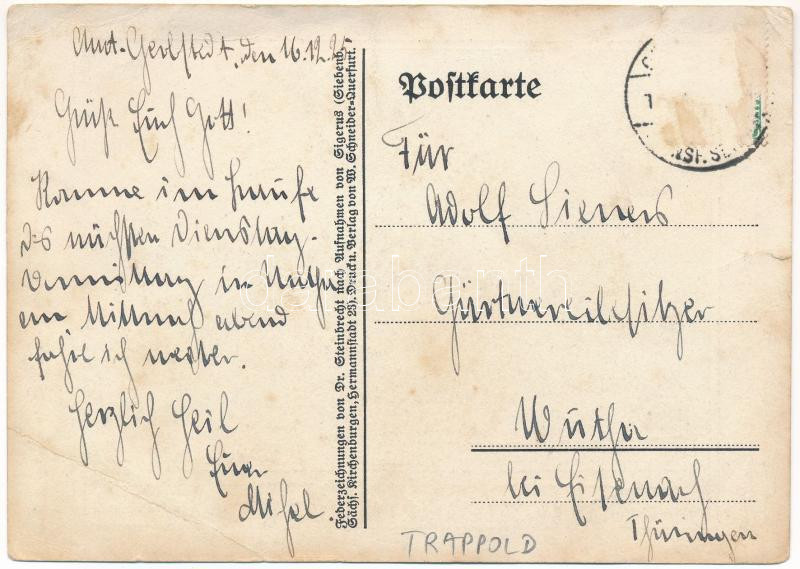 Amt-Gerbstedt, den 16.12.25
Grüß Euch Gott!
Komme im Laufe
des nächsten Dienstag-
in Wutha
am Mittwoch abend
fahre ich weiter.
Herzlich Heil
Euer
Michel.
Federzeichnungen von Dr. Steinbrecht nach Aufnahmen von Sigerus (Siebenb.
Sächs. Kirchenburgen, Hermannstadt 23). Druck u. Verlag von W. Schneider-Querfurt.
Postkarte
Für
Adolf Sievers
Gärtnereibesitzer
Wutha
bei Eisenach
Thüringen
TRAPPOLD
darabanth